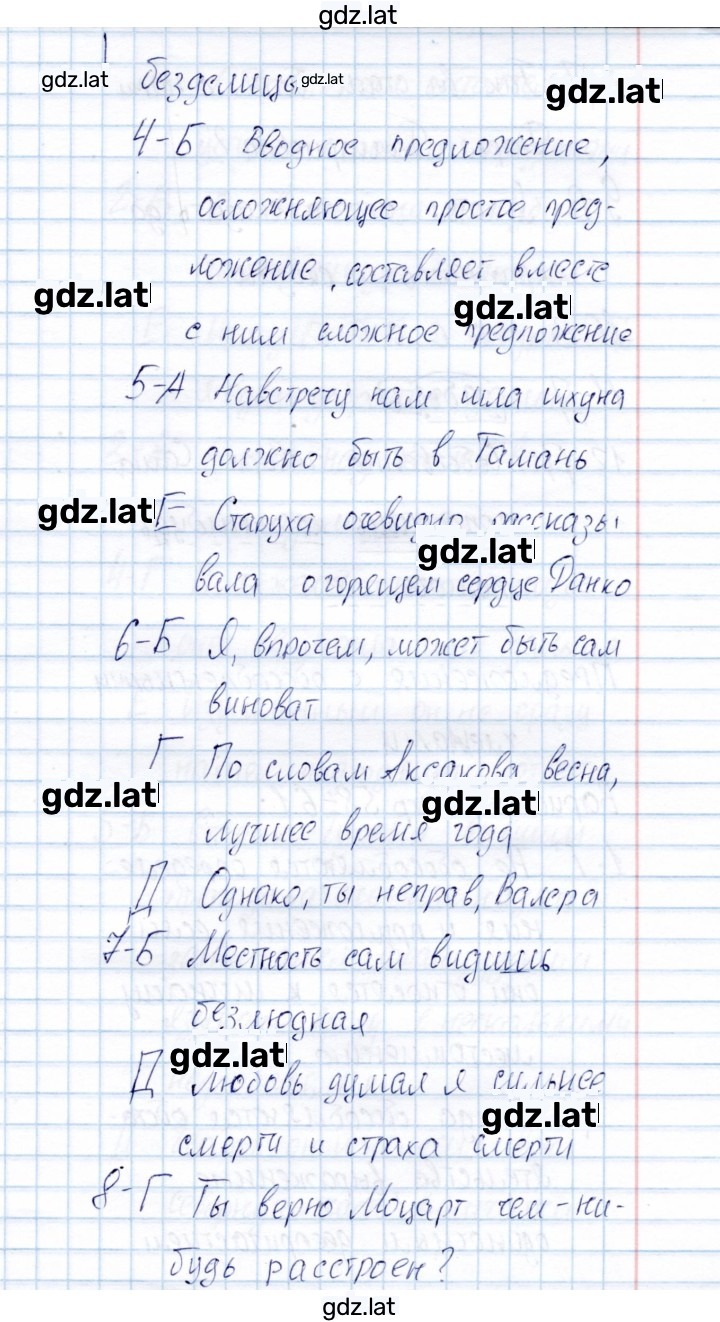 gdz.lat
gdz.lat безделицы. gdz.lat gdz.lat
4-Б Вводное предложение,
осложняющее простое пред-
ложение, составляет вместе
gdz.lat gdz.lat
с ним сложное предложение
5-А Навстречу нам шла шхуна
должно быть в Тамань
gdz.lat Е Старуха очевидно рассказы
gdz.lat
вала о горещем сердце Данко
6-Б Я, впрочем, может быть сам
виноват
Г По словам Аксакова весна,
gdz.lat gdz.lat
лучшее время года
Д Однако, ты неправ, Валера
7-Б Местность сам видишь
безлюдная
gdz.lat
Д Любовь думал я сильнее
gdz.lat
смерти и страха смерти
8-Г Ты верно Моцарт чем-ни-
будь расстроен?
gdz.lat